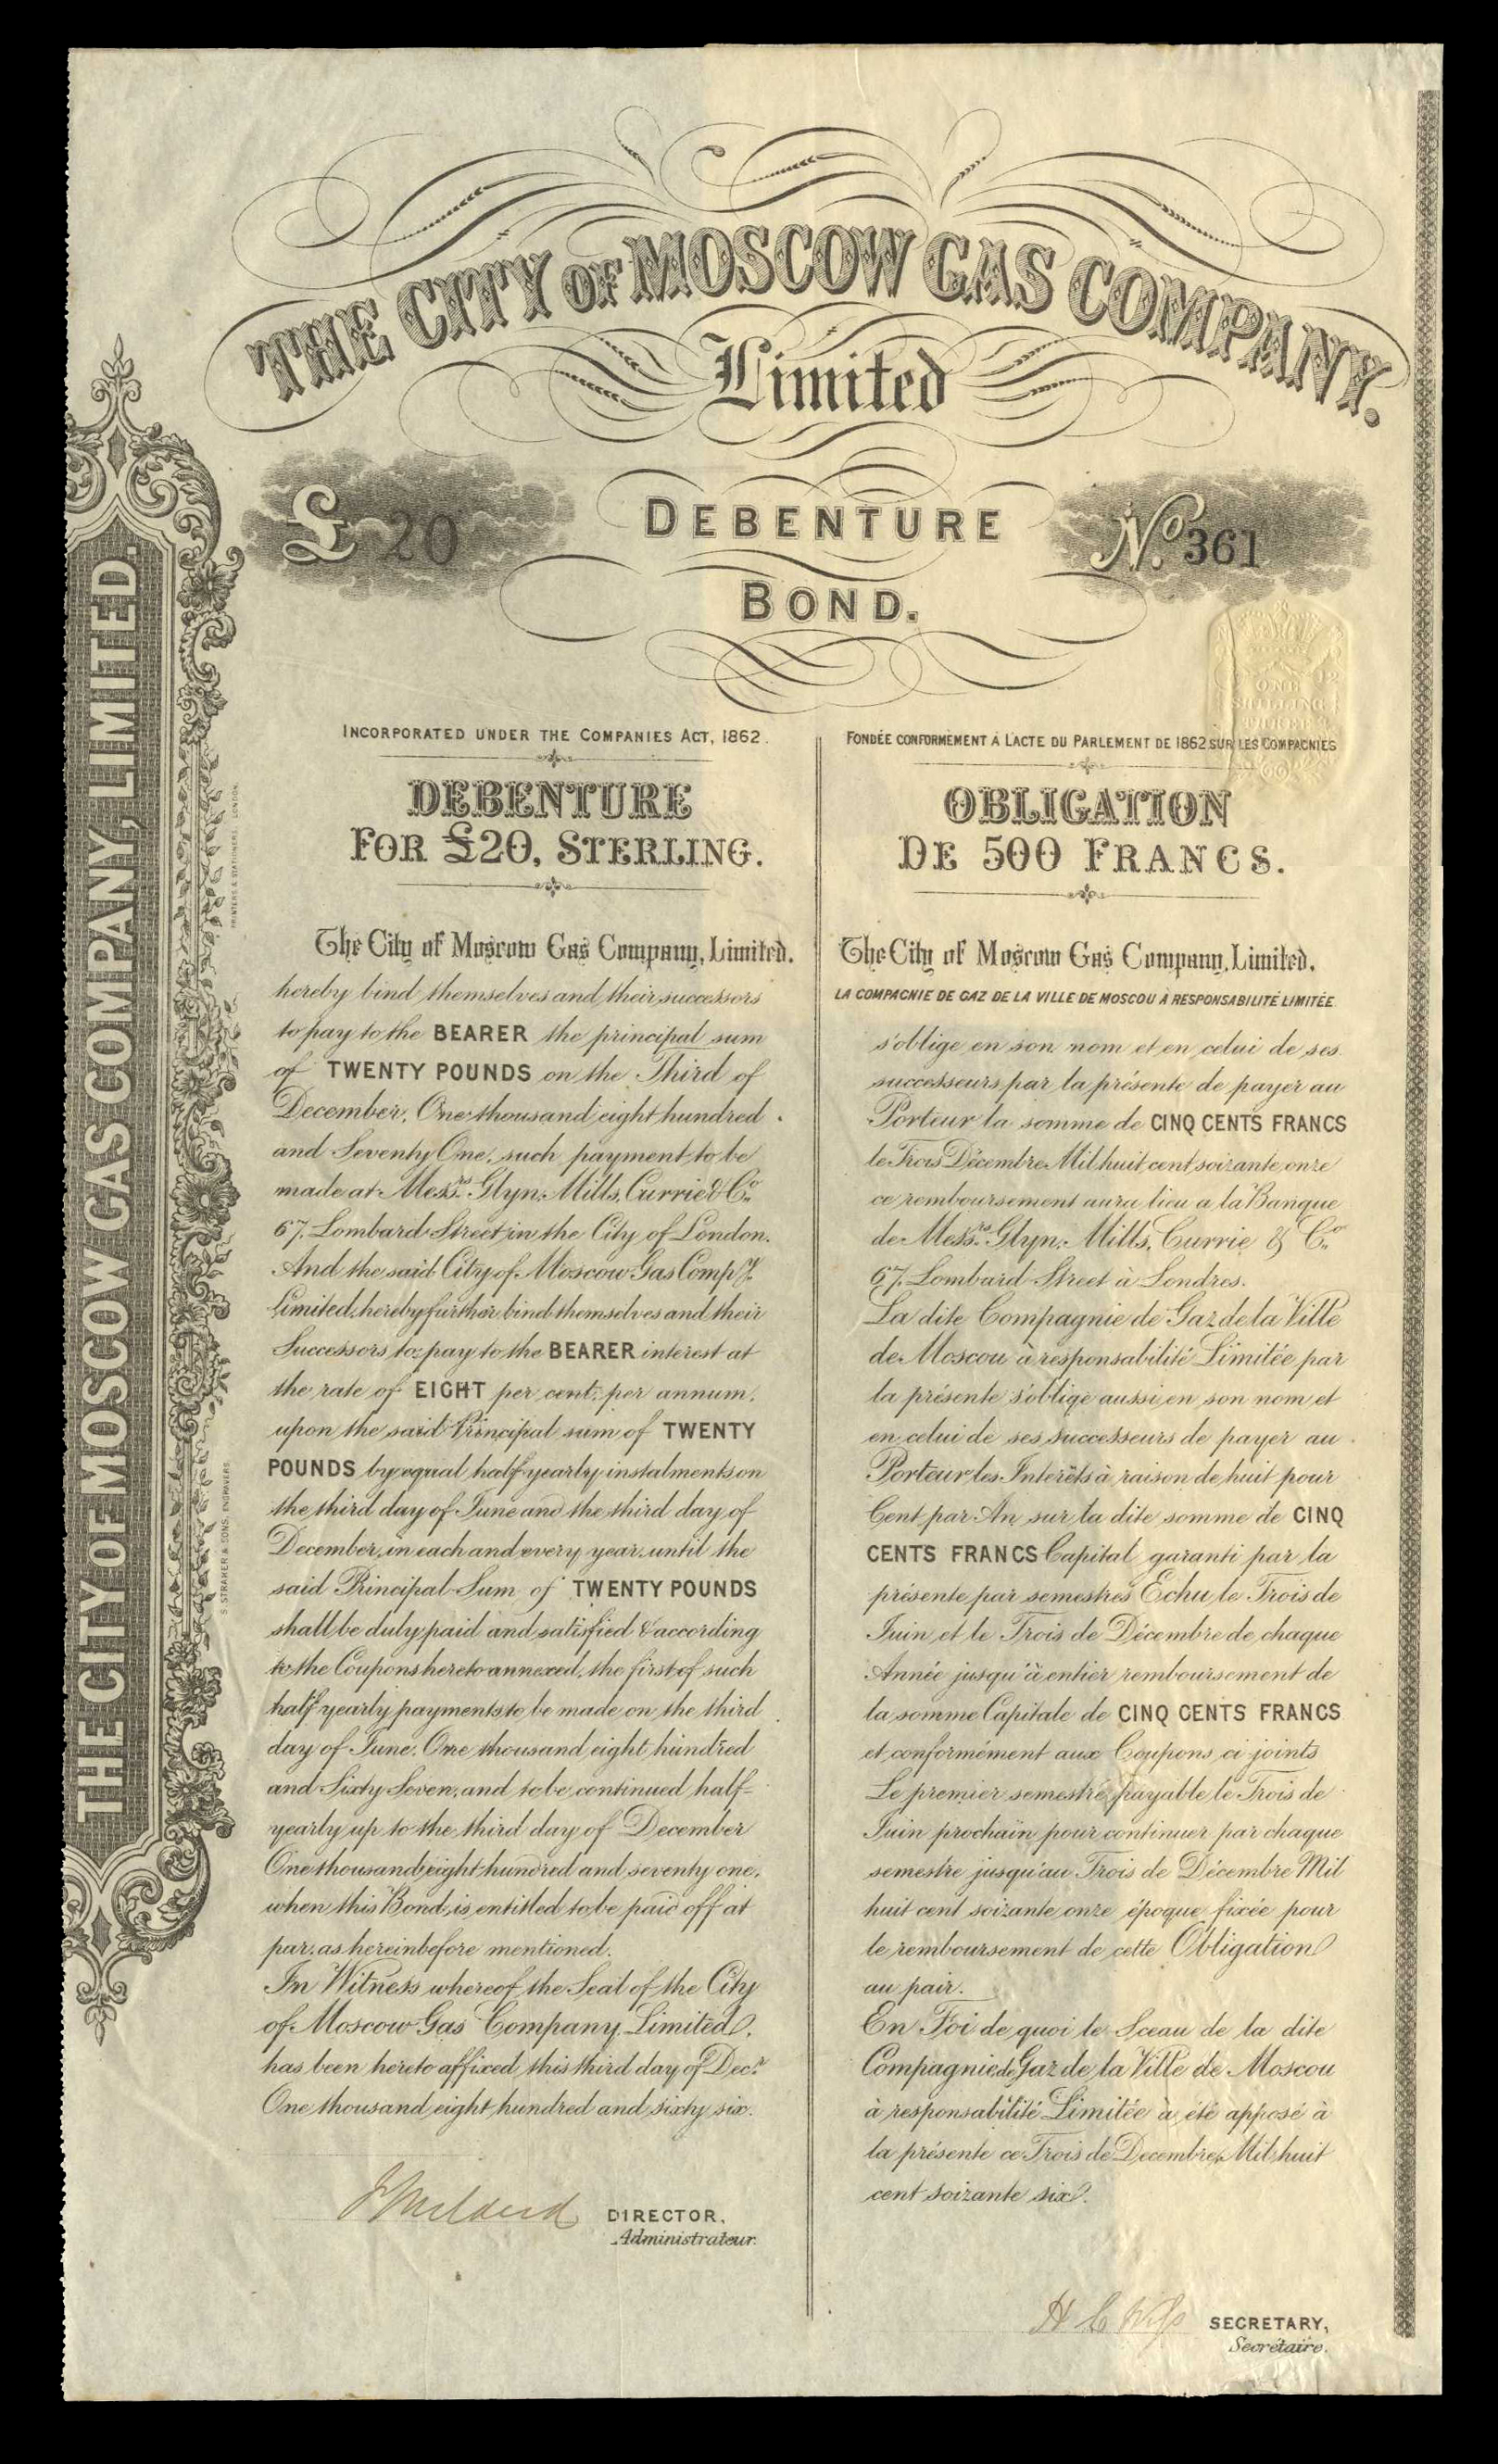 THE CITY OF MOSCOW GAS COMPANY.
Limited
£ 20
DEBENTURE
BOND.
No. 361
ONE
SHILLING
THREE
THE CITY OF MOSCOW GAS COMPANY, LIMITED.
PRINTERS & STATIONERS, LONDON.
S. STRAKER & SONS, ENGRAVERS.
INCORPORATED UNDER THE COMPANIES ACT, 1862.
DEBENTURE
FOR £20, STERLING.
The City of Moscow Gas Company, Limited.
hereby bind themselves and their successors
to pay to the BEARER the principal sum
of TWENTY POUNDS on the Third of
December, One thousand eight hundred
and Seventy One, such payment to be
made at Messrs. Glyn, Mills, Currie & Co.
67, Lombard Street, in the City of London.
And the said City of Moscow Gas Compy.
Limited, hereby further bind themselves and their
Successors to pay to the BEARER interest at
the rate of EIGHT per cent: per annum,
upon the said Principal sum of TWENTY
POUNDS by equal half yearly instalments on
the third day of June and the third day of
December, in each and every year, until the
said Principal Sum of TWENTY POUNDS
shall be duly paid and satisfied & according
to the Coupons hereto annexed, the first of such
half yearly payments to be made on the third
day of June, One thousand eight hundred
and Sixty Seven, and to be continued half-
yearly up to the third day of December
One thousand eight hundred and seventy one,
when this Bond, is entitled to be paid off at
par, as hereinbefore mentioned.
In Witness whereof the Seal of the City
of Moscow Gas Company, Limited,
has been hereto affixed, this third day of Decr.
One thousand eight hundred and sixty six.
DIRECTOR,
Administrateur.
FONDÉE CONFORMEMENT A L'ACTE DU PARLEMENT DE 1862 SUR LES COMPAGNIES
OBLIGATION
DE 500 FRANCS.
The City of Moscow Gas Company, Limited,
LA COMPAGNIE DE GAZ DE LA VILLE DE MOSCOU À RESPONSABILITÉ LIMITÉE
s'oblige en son nom et en celui de ses
successeurs par la présente de payer au
Porteur la somme de CINQ CENTS FRANCS
le Trois Décembre Mil huit cent soixante onze
ce remboursement aura lieu a la Banque
de Messrs. Glyn, Mills, Currie & Co.
67, Lombard Street à Londres.
La dite Compagnie de Gaz de la Ville
de Moscou à responsabilité Limitée par
la présente s'oblige aussi en son nom et
en celui de ses successeurs de payer au
Porteur les Interêts à raison de huit pour
Cent par An sur la dite somme de CINQ
CENTS FRANCS Capital garanti par la
présente par semestres Echu le Trois de
Juin et le Trois de Décembre de chaque
Année jusqu'à entier remboursement de
la somme Capitale de CINQ CENTS FRANCS
et conformément aux Coupons ci joints
Le premier semestre payable le Trois de
Juin prochain pour continuer par chaque
semestre jusqu'au Trois de Décembre Mil
huit cent soixante onze époque fixée pour
le remboursement de cette Obligation
au pair.
En Foi de quoi le Sceau de la dite
Compagnie de Gaz de la Ville de Moscou
à responsabilité Limitée à été apposé à
la présente ce Trois de Decembre Mil huit
cent soixante six.
SECRETARY,
Secrétaire.